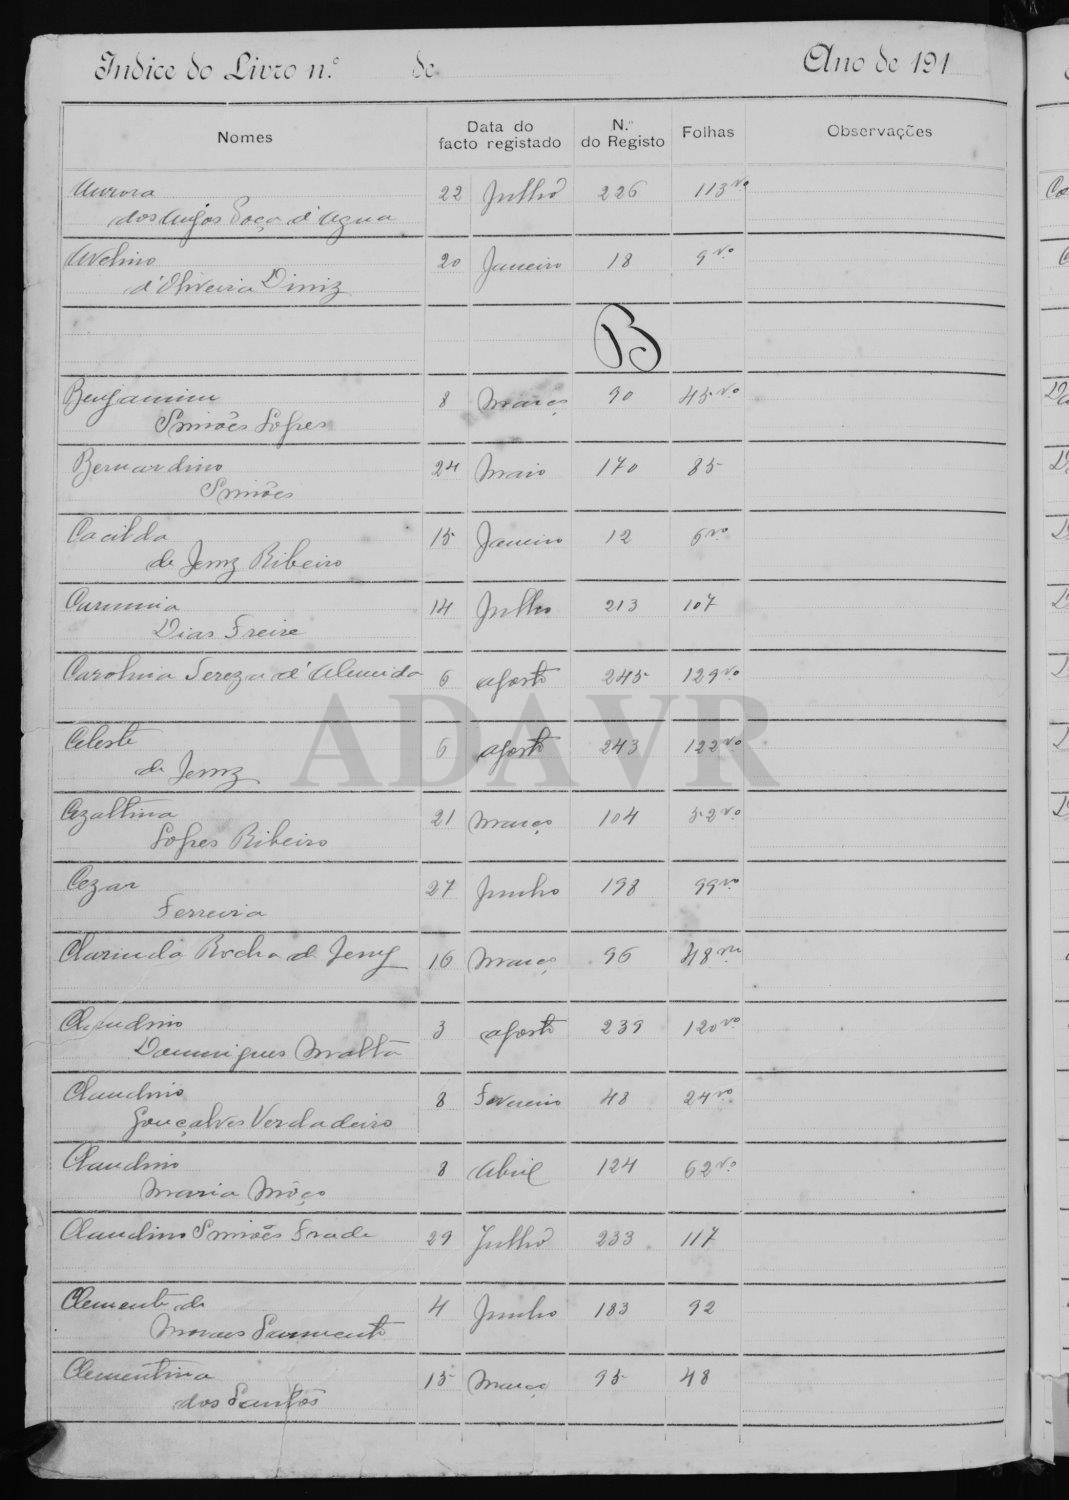 Indice do Livro n.º de Ano de 191
Nomes Data do facto registado N.º do Registo Folhas Observações
Aurora 22 Julho 226 113 vº
dos Anjos Poça d'Agua
Avelino 20 Janeiro 18 9 vº
d'Oliveira Diniz
B
Benjamim 8 Março 90 45 vº
Simões Lopes
Bernardino 24 Maio 170 85
Simões
Cacilda 15 Janeiro 12 6 vº
de Jesuz Ribeiro
14 Julho 213 107
Dias Freire
Carolina Tereza d'Almeida 6 Agosto 245 129 vº
Celeste 6 Agosto 243 122 vº
de Jesuz
Cezaltina 21 Março 104 52 vº
Lopes Ribeiro
Cezar 27 Junho 198 99 vº
Ferreira
Clarinda Rocha de Jesus 16 Março 96 48 vº
Claudino 3 Agosto 239 120 vº
Domingues Malta
Claudino 8 Fevereiro 48 24 vº
Gonçalves Verdadeiro
Claudino 8 Abril 124 62 vº
Maria Môço
Claudino Simões Frade 29 Julho 233 117
Clemente de 4 Junho 183 92
Moraes Sarmento
Clementina 15 Março 95 48
dos Santos
ADAVR